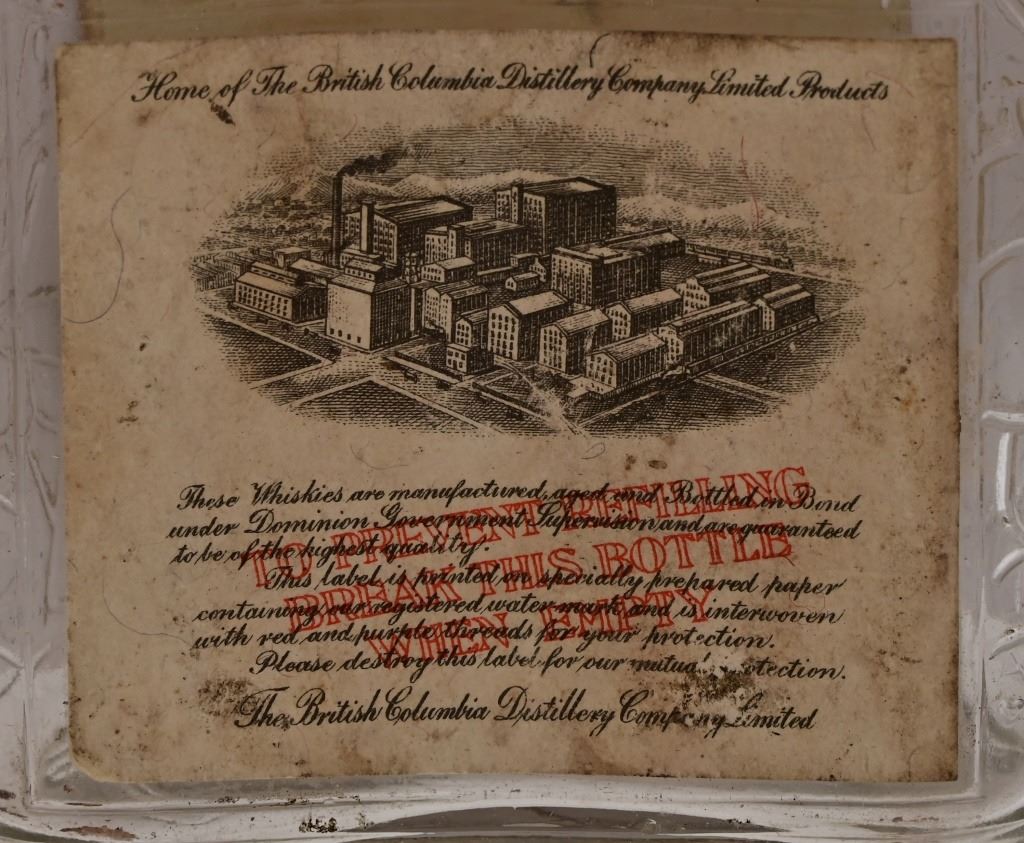 Home of The British Columbia Distillery Company Limited Products
These Whiskies are manufactured, aged and Bottled in Bond
under Dominion Government Supervision and are guaranteed
to be of the highest quality.
This label is printed on specially prepared paper
containing our registered water-mark and is interwoven
with red and purple threads for your protection.
Please destroy this label for our mutual protection.
The British Columbia Distillery Company Limited
TO PREVENT REFILLING
BREAK THIS BOTTLE
WHEN EMPTY